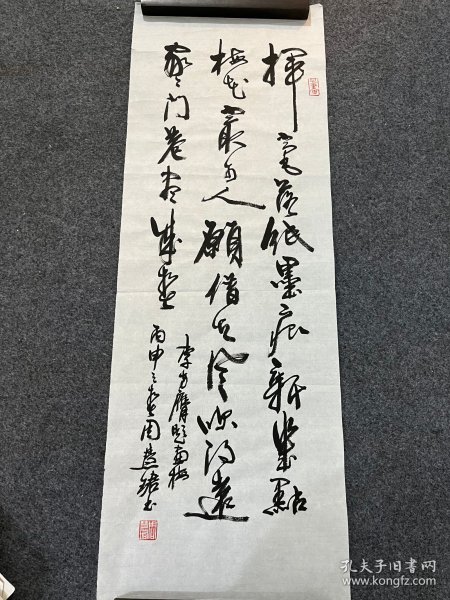 揮毫落紙墨痕新幾點
梅花最可人願借天風吹得遠
家々門巷尽成春
李方膺題画梅
丙申之春周慧珺书
孔夫子旧书网
www.kongfz.com